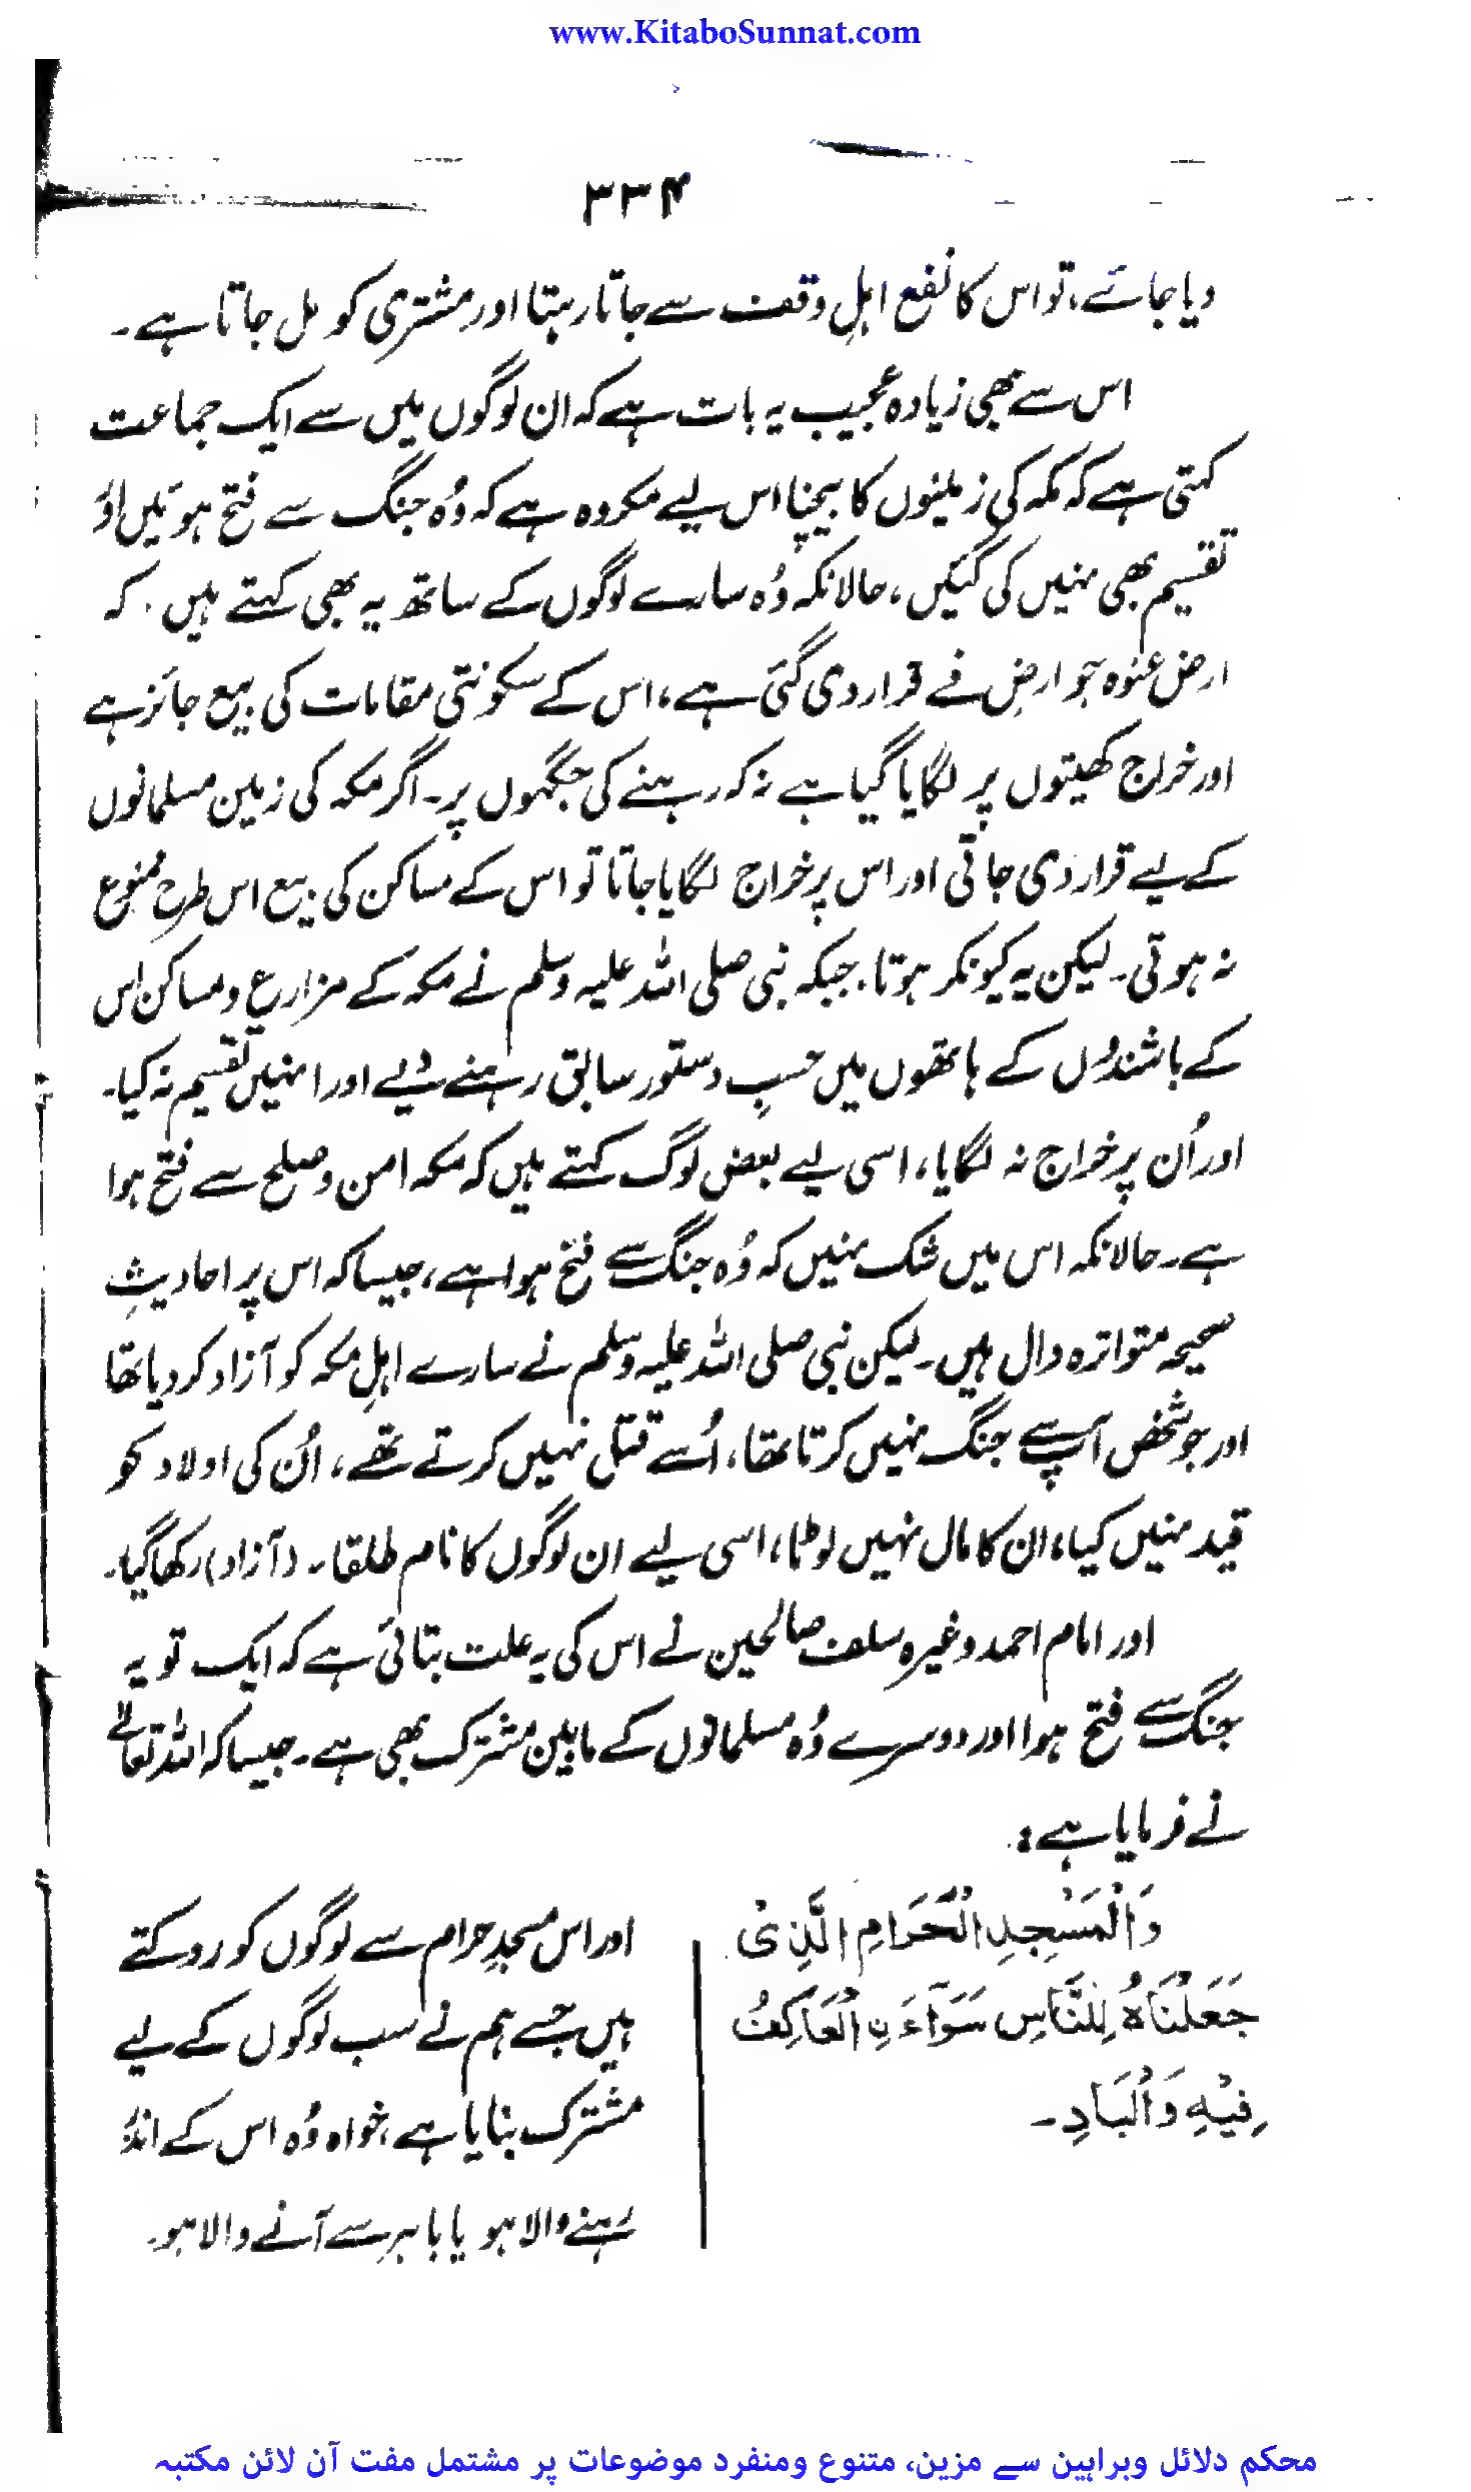 www.KitaboSunnat.com
۳۳۴
دیا جائے، تو اس کا نفع اہلِ وقف سے جاتا رہتا اور مشتری کو مل جاتا ہے۔
اس سے بھی زیادہ عجیب یہ بات ہے کہ ان لوگوں میں سے ایک جماعت
کہتی ہے کہ مکہ کی زمینوں کا بیچنا اس لیے مکروہ ہے کہ وُہ جنگ سے فتح ہوئیں اور
تقسیم بھی نہیں کی گئیں، حالانکہ وُہ سارے لوگوں کے ساتھ یہ بھی کہتے ہیں۔ کہ
ارض عنوہ جو ارضِ فے قرار دی گئی ہے، اس کے سکونتی مقامات کی بیع جائز ہے
اور خراج کھیتوں پر لگایا گیا ہے نہ کہ رہنے کی جگہوں پر۔ اگر مکہ کی زمین مسلمانوں
کے لیے قرار دی جاتی اور اس پر خراج لگایا جاتا تو اس کے مساکن کی بیع اس طرح ممنوع
نہ ہوتی۔ لیکن یہ کیونکر ہوتا، جبکہ نبی صلی اللہ علیہ وسلم نے مکہ کے مزارع و مساکن اس
کے باشندوں کے ہاتھوں میں حسبِ دستور سابق رہنے دیے اور انہیں تقسیم نہ کیا۔
اور اُن پر خراج نہ لگایا، اسی لیے بعض لوگ کہتے ہیں کہ مکہ امن و صلح سے فتح ہوا
ہے۔ حالانکہ اس میں شک نہیں کہ وُہ جنگ سے فتح ہوا ہے، جیسا کہ اس پر احادیثِ
صحیحہ متواترہ دال ہیں۔ لیکن نبی صلی اللہ علیہ وسلم نے سارے اہلِ مکہ کو آزاد کر دیا تھا
اور جو شخص آپ سے جنگ نہیں کرتا تھا، اُسے قتل نہیں کرتے تھے، اُن کی اولاد کو
قید نہیں کیا، ان کا مال نہیں لوٹا، اسی لیے ان لوگوں کا نام طلقاء (آزاد) رکھا گیا۔
اور امام احمد وغیرہ سلف صالحین نے اس کی یہ علت بتائی ہے کہ ایک تو یہ
جنگ سے فتح ہوا اور دوسرے وُہ مسلمانوں کے مابین مشترک بھی ہے۔ جیسا کہ اللہ تعالےٰ
نے فرمایا ہے:
وَالْمَسْجِدِ الْحَرَامِ الَّذِیْ
جَعَلْنَاهُ لِلنَّاسِ سَوَآءَ نِ الْعَاکِفُ
فِیْهِ وَالْبَادِ۔
اور اس مسجدِ حرام سے لوگوں کو روکتے
ہیں جسے ہم نے سب لوگوں کے لیے
مشترک بنایا ہے، خواہ وُہ اس کے اندر
رہنے والا ہو یا باہر سے آنے والا ہو۔
محکم دلائل وبراہین سے مزین، متنوع ومنفرد موضوعات پر مشتمل مفت آن لائن مکتبہ